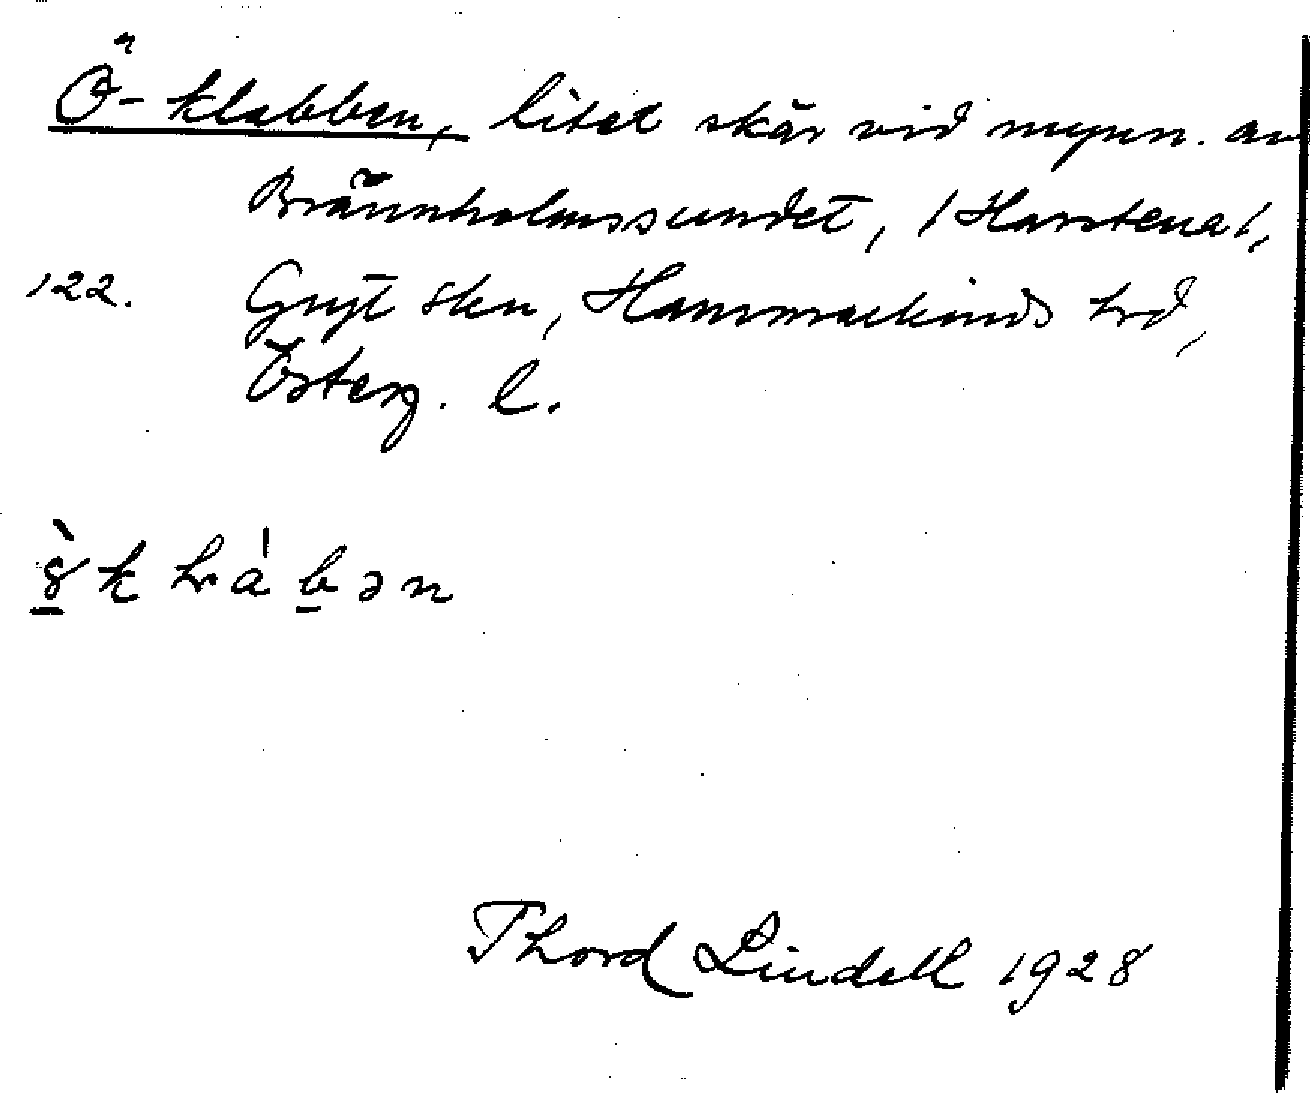 Ö-klabben, litet skär vid mynn. av
Brännholmssundet, /Harstena/,
122. Gryt skn, Hammarkinds hrd,
Österg. l.
Thord Lindell 1928